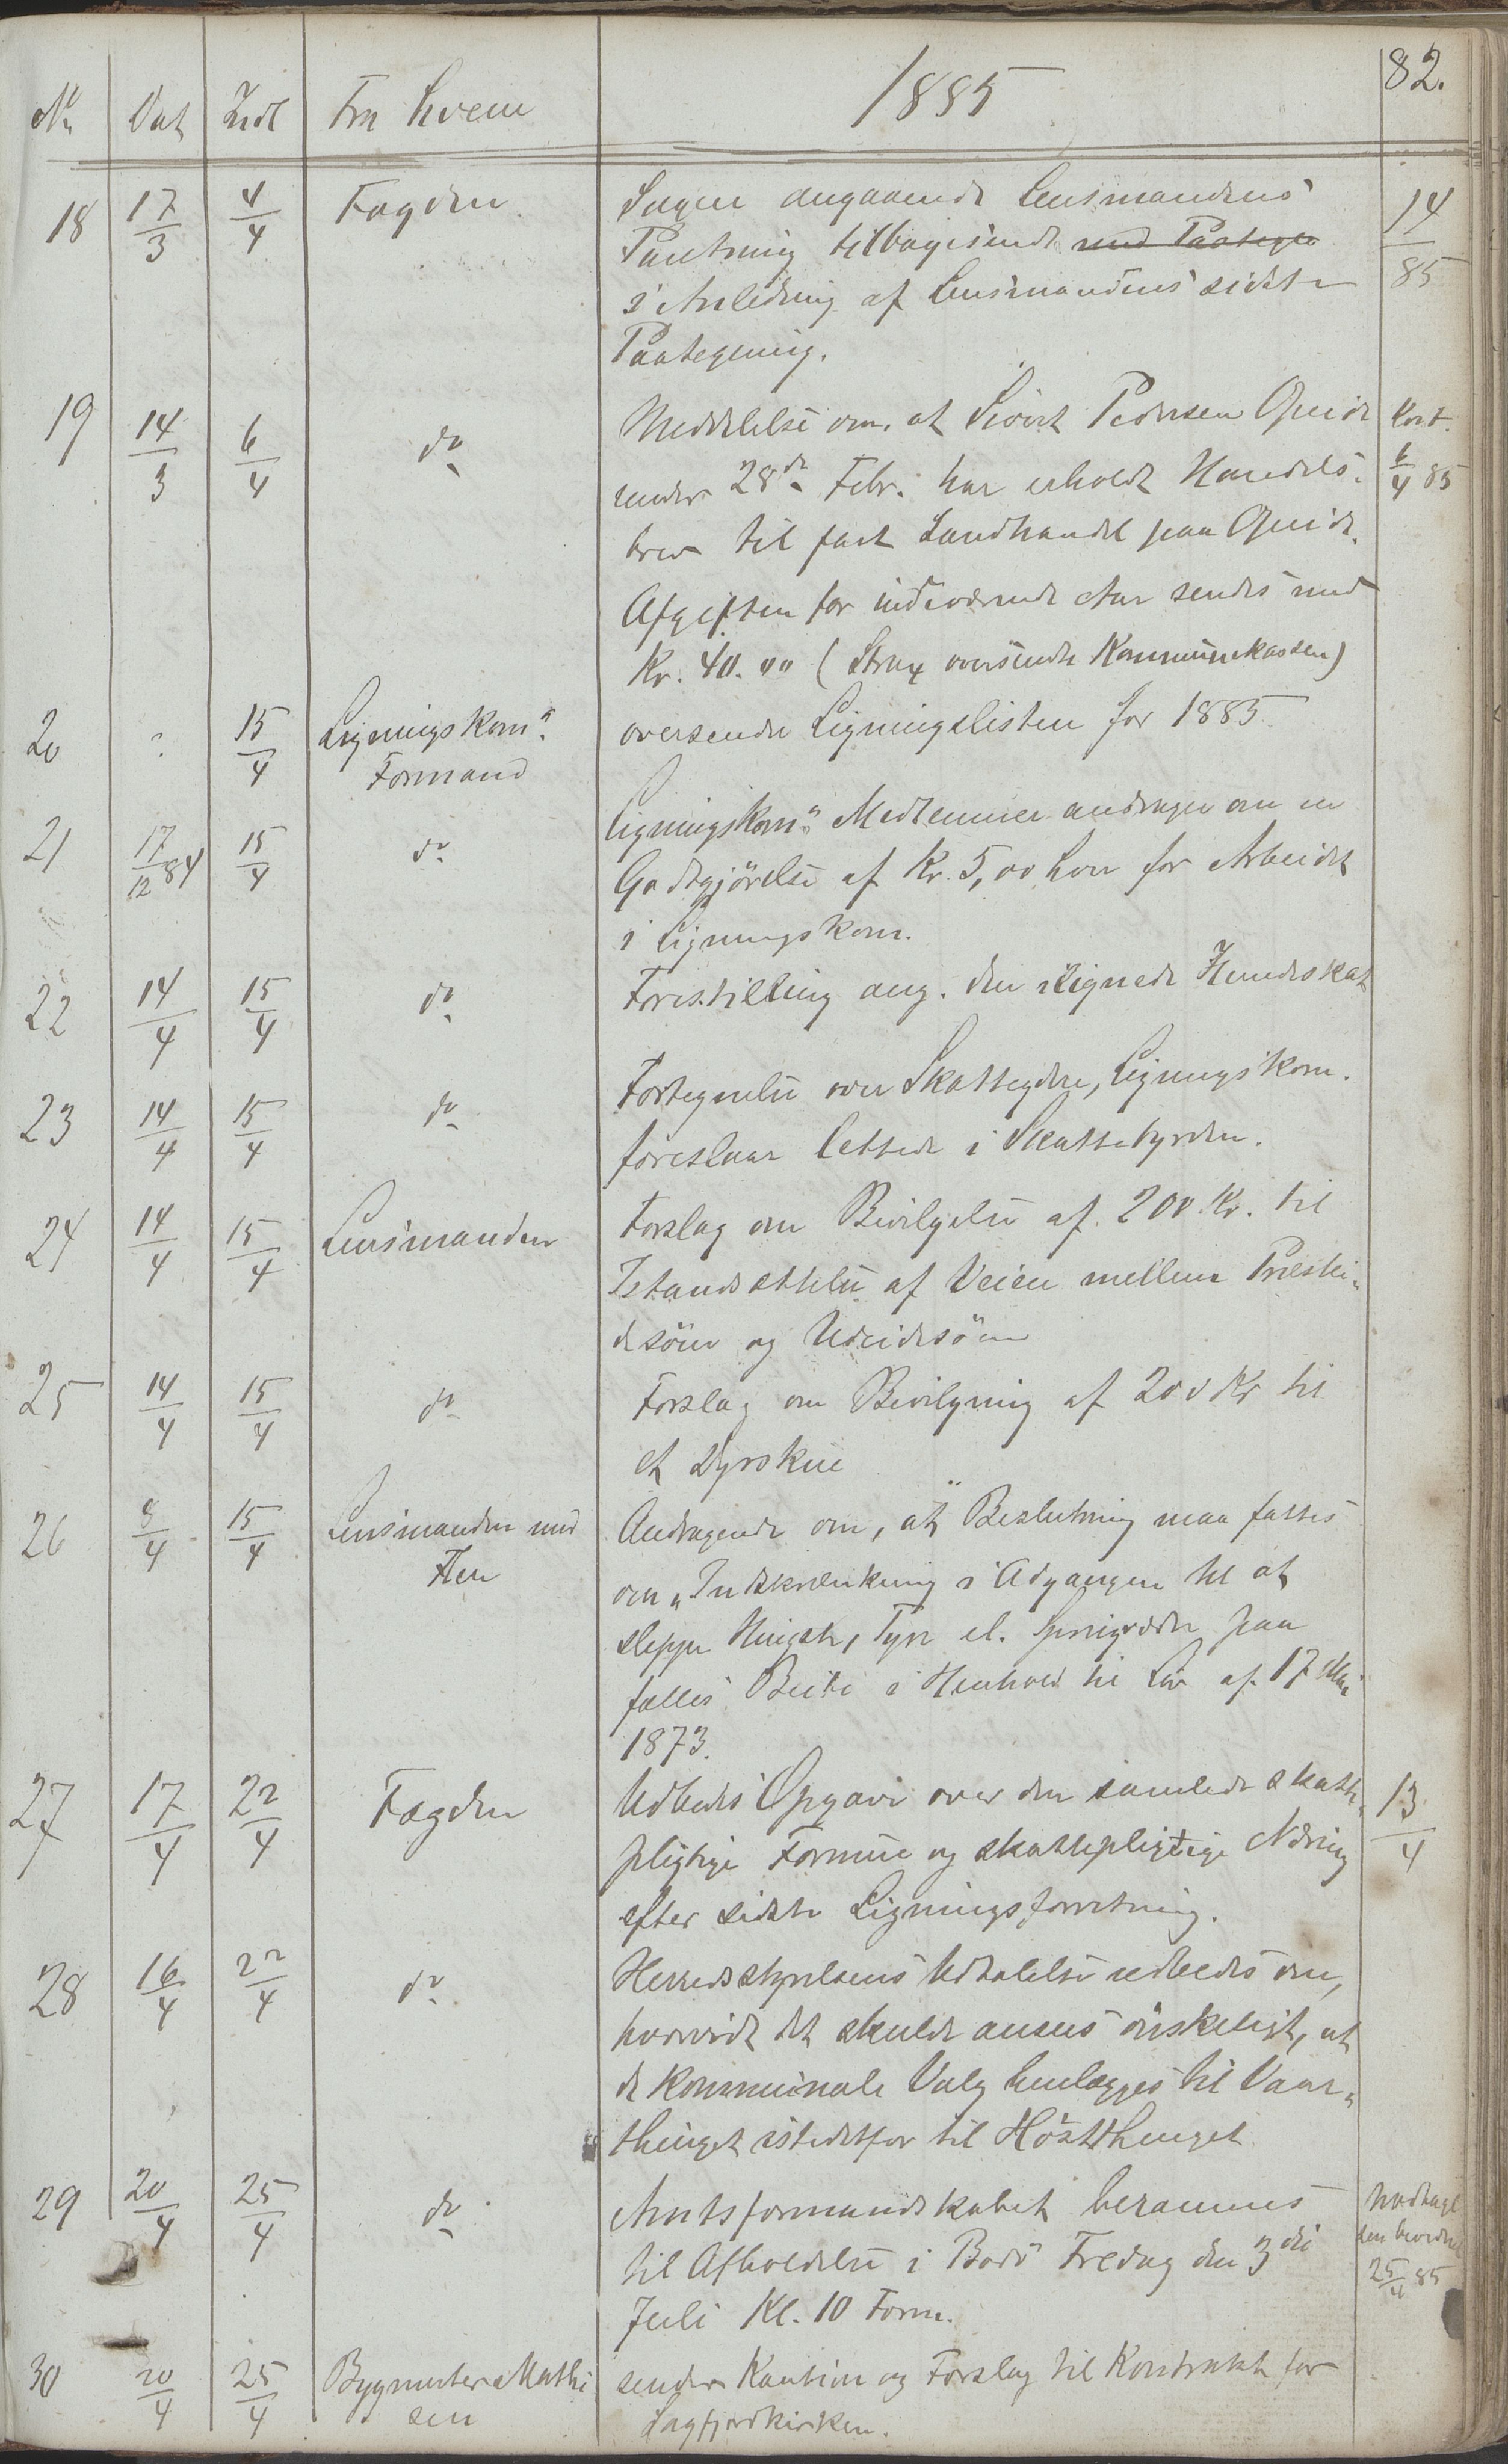 82.
No Dat Indl Fra hvem 1885
18 17/3 4/4 Fogden Sagen angaaende Lensmandens 14/85
Pantning tilbagesendt med Paategn
i Anledning af Lensmandens sidste
Paategning.
19 14/3 6/4 do Meddelelse om, at Sivert Pedersen Opeide Kort.
under 28de Febr. har erholdt Handels- 6/4 85
brev til fast Landhandel paa Opeide.
Afgiften for indeværende Aar sendes med
Kr. 40.00 (Strax oversendt Kommunekassen)
20 15/4 Ligningskoms oversender Ligningslisten for 1885
Formand
21 17/12 84 15/4 do Ligningskoms Medlemmer andrager om en
Godtgjörelse af Kr. 5,00 hver for Arbeidet
i Ligningskom.
22 14/4 15/4 do Forestilling ang. den ilignede Hundeskat
23 14/4 15/4 do Fortegnelse over Skatteydere, Ligningskom.
foreslaar lettede i Skattebyrden.
24 14/4 15/4 Lensmanden Forslag om Bevilgelse af 200 Kr. til
Istandsættelse af Veien mellem Prestei-
desöen og Udeidesöen
25 14/4 15/4 do Forslag om Bevilgning af 200 Kr til
et Dyrskue
26 8/4 15/4 Lensmanden med Andragende om, at Beslutning maa fattes
Flere om "Indskrænkning i Adgangen til at
sleppe Hingste, Tyre el. Springvædre paa
fælles Beite i Henhold til Lov af 17 Mai
1873.
27 17/4 22/4 Fogden Udbedes Opgave over den samlede skatte- 13/4
pligtige Formue og skattepligtige Næring
efter sidste Ligningsforretning.
28 16/4 22/4 do Herredsstyrelsens Udtalelse udbedes om,
hvorvidt det skulde ansees önskeligt, at
de kommunale Valg henlægges til Vaar-
thinget istedetfor til Höstthinget
29 20/4 25/4 do Amtsformandskabet berammes Modtagel
til Afholdelse i Bodö Fredag den 3die sen bevidnet
Juli Kl. 10 Form. 25/4 85
30 20/4 25/4 Bygmester Mathi sender Kaution og Forslag til Kontrakt for
sen Sagfjordkirken.